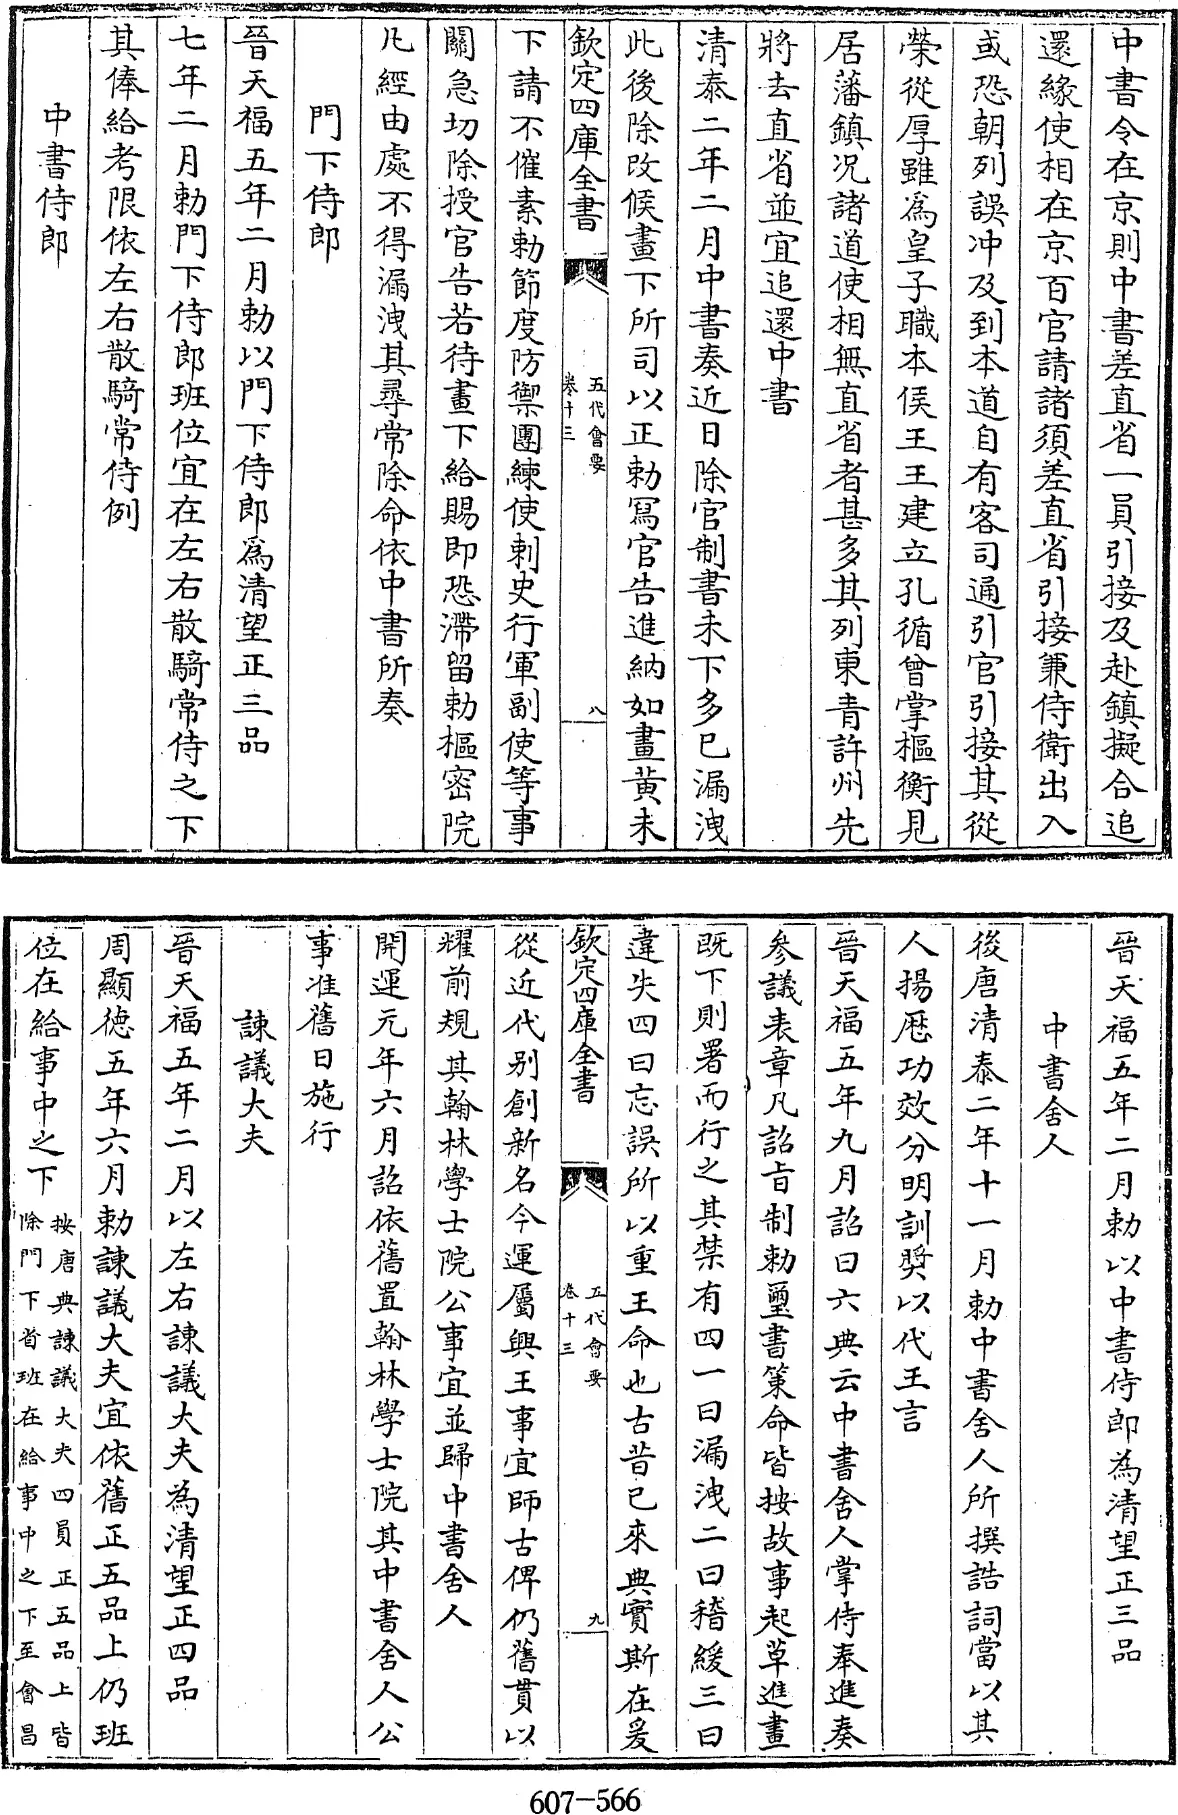 中書令在京則中書差直省一員引接及赴鎮擬合追
還緣使相在京百官請諸須差直省引接兼侍衛出入
或恐朝列誤冲及到本道自有客司通引官引接其從
榮從厚雖爲皇子職本侯王王建立孔循曾掌樞衡見
居藩鎮况諸道使相無直省者甚多其列東青許州先
將去直省並宜追還中書
清泰二年二月中書奏近日除官制書未下多已漏洩
此後除改候畫下所司以正勅冩官告進納如畫黄未
欽定四庫全書
五代會要
卷十三
八
下請不催素勅節度防禦團練使刺史行軍副使等事
關急切除授官告若待畫下給賜即恐滯留勅樞密院
凡經由處不得漏洩其尋常除命依中書所奏
門下侍郎
晉天福五年二月勅以門下侍郎爲清望正三品
七年二月勅門下侍郎班位宜在左右散騎常侍之下
其俸給考限依左右散騎常侍例
中書侍郎
晉天福五年二月勅以中書侍郎為清望正三品
中書舍人
後唐清泰二年十一月勅中書舍人所撰誥詞當以其
人揚厯功效分明訓奬以代王言
晉天福五年九月詔曰六典云中書舍人掌侍奉進奏
參議表章凡詔旨制勅璽書策命皆按故事起草進畫
既下則署而行之其禁有四一曰漏洩二曰稽緩三曰
違失四曰忘誤所以重王命也古昔已來典實斯在爰
欽定四庫全書
五代會要
卷十三
九
從近代别創新名今運屬興王事宜師古俾仍舊貫以
耀前規其翰林學士院公事宜並歸中書舍人
開運元年六月詔依舊置翰林學士院其中書舍人公
事准舊日施行
諫議大夫
晉天福五年二月以左右諫議大夫為清望正四品
周顯德五年六月勅諫議大夫宜依舊正五品上仍班
位在給事中之下
按唐典諫議大夫四員正五品上皆
除門下省班在給事中之下至會昌
607-566